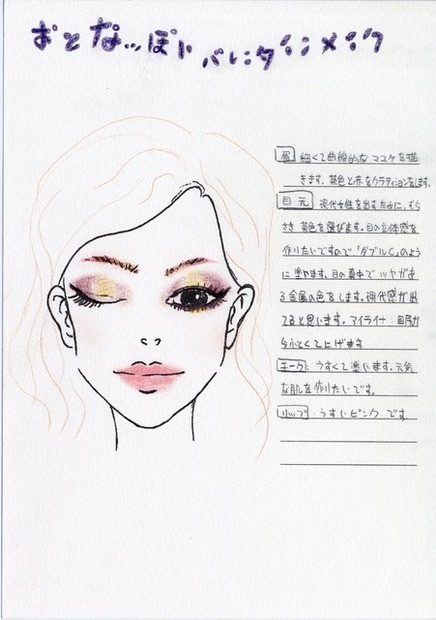 おとなっぽい
バレンタインメイク
眉 細くて曲線的なマユゲを描
きます。茶色と赤をグラデイションをします。
目元 現代女性を出すために、むら
さき 茶色を選びます。目の立体感を
作りたいですので「ダブルC」のよう
に塗ります。目の真中で ツヤがあ
る金属の色をします。現代感が出
てると思います。アイライナー:目尻か
ら ふとくて上げます
チーク: うすくて塗います。元気
な肌を作りたいです。
リップ: うすいピンク です